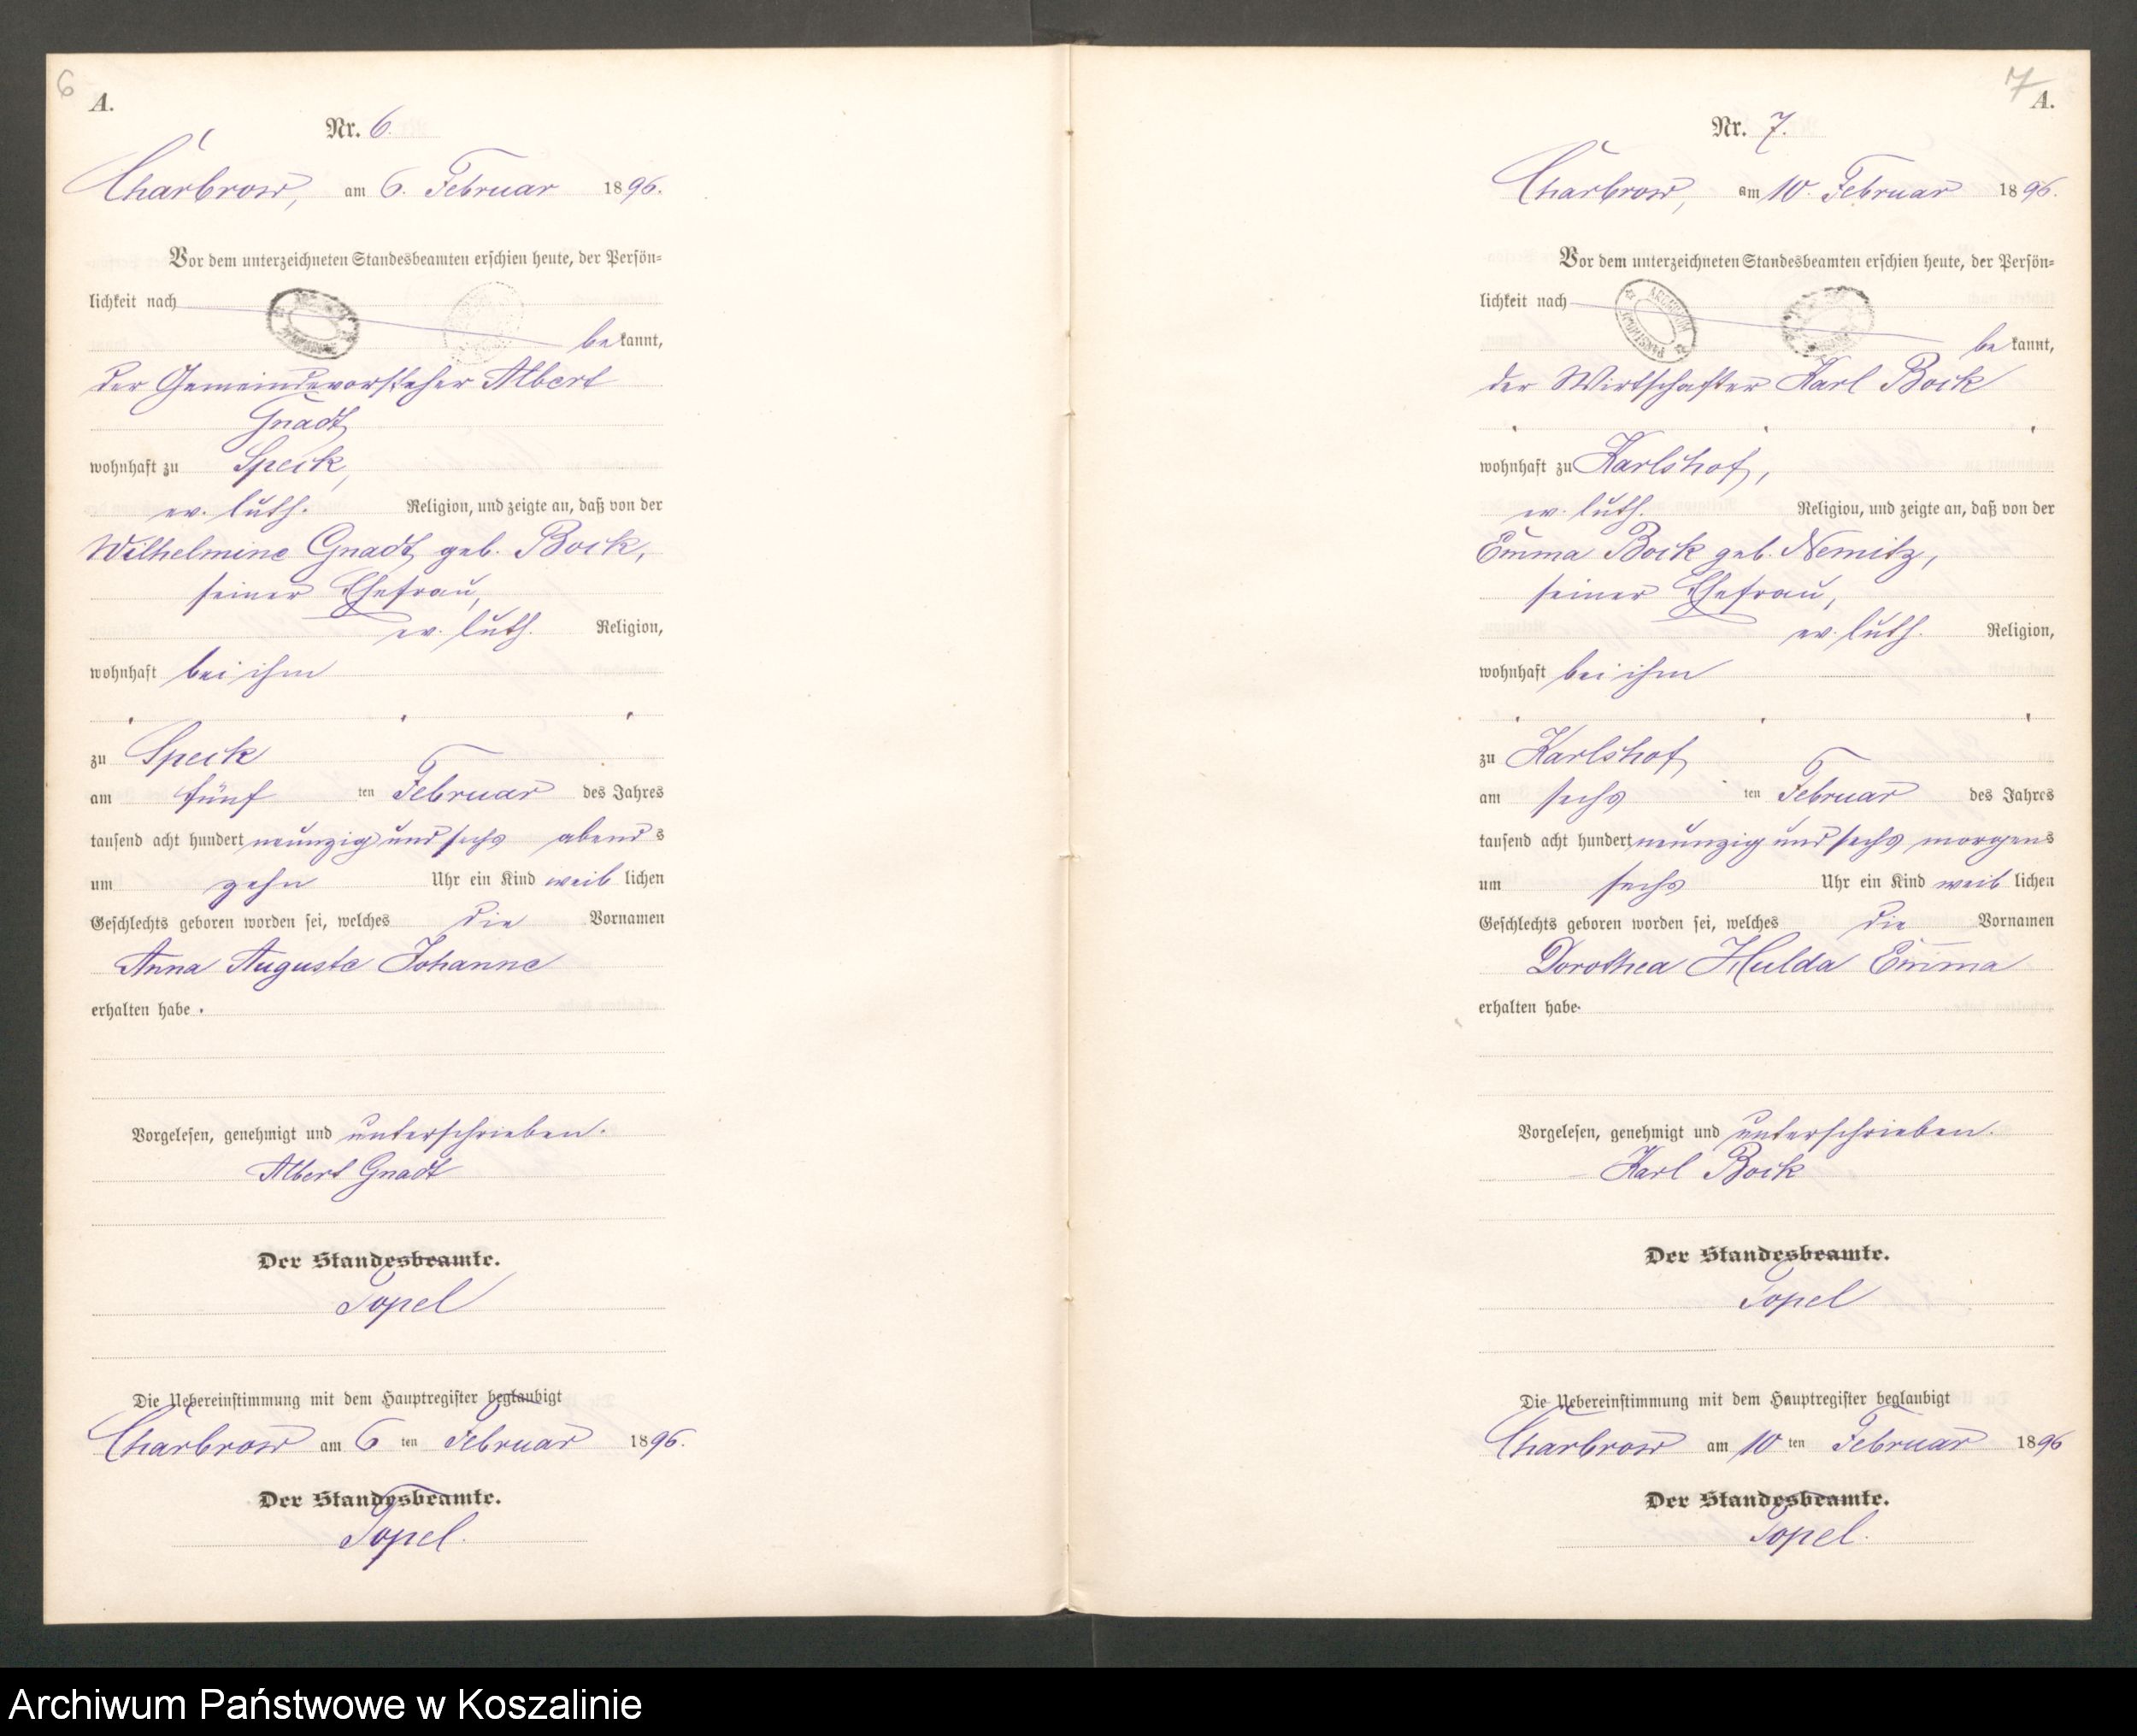 6
A.
Nr. 6.
Charbrow, am 6. Februar 1896.
Vor dem unterzeichneten Standesbeamten erschien heute, der Persön-
lichkeit nach
bekannt,
der Gemeindevorsteher Albert
Gnadt
wohnhaft zu Speck,
ev. luth. Religion, und zeigte an, daß von der
Wilhelmine Gnadt geb. Bock,
seiner Ehefrau,
ev. luth. Religion,
wohnhaft bei ihm
zu Speck
am fünf ten Februar des Jahres
tausend acht hundert neunzig und sechs abends
um zehn Uhr ein Kind weiblichen
Geschlechts geboren worden sei, welches die Vornamen
Anna Auguste Johanne
erhalten habe.
Vorgelesen, genehmigt und unterschrieben.
Albert Gnadt
Der Standesbeamte.
Topel
Die Uebereinstimmung mit dem Hauptregister beglaubigt
Charbrow am 6 ten Februar 1896.
Der Standesbeamte.
Topel.
7
A.
Nr. 7.
Charbrow, am 10. Februar 1896.
Vor dem unterzeichneten Standesbeamten erschien heute, der Persön-
lichkeit nach
bekannt,
der Wirtschafter Karl Bock
wohnhaft zu Karlshof,
ev. luth. Religion, und zeigte an, daß von der
Emma Bock geb. Nemitz,
seiner Ehefrau,
ev. luth. Religion,
wohnhaft bei ihm
zu Karlshof
am sechs ten Februar des Jahres
tausend acht hundert neunzig und sechs morgens
um sechs Uhr ein Kind weiblichen
Geschlechts geboren worden sei, welches die Vornamen
Dorothea Hulda Emma
erhalten habe.
Vorgelesen, genehmigt und unterschrieben.
Karl Bock
Der Standesbeamte.
Topel
Die Uebereinstimmung mit dem Hauptregister beglaubigt
Charbrow am 10 ten Februar 1896
Der Standesbeamte.
Topel.
Archiwum Państwowe w Koszalinie